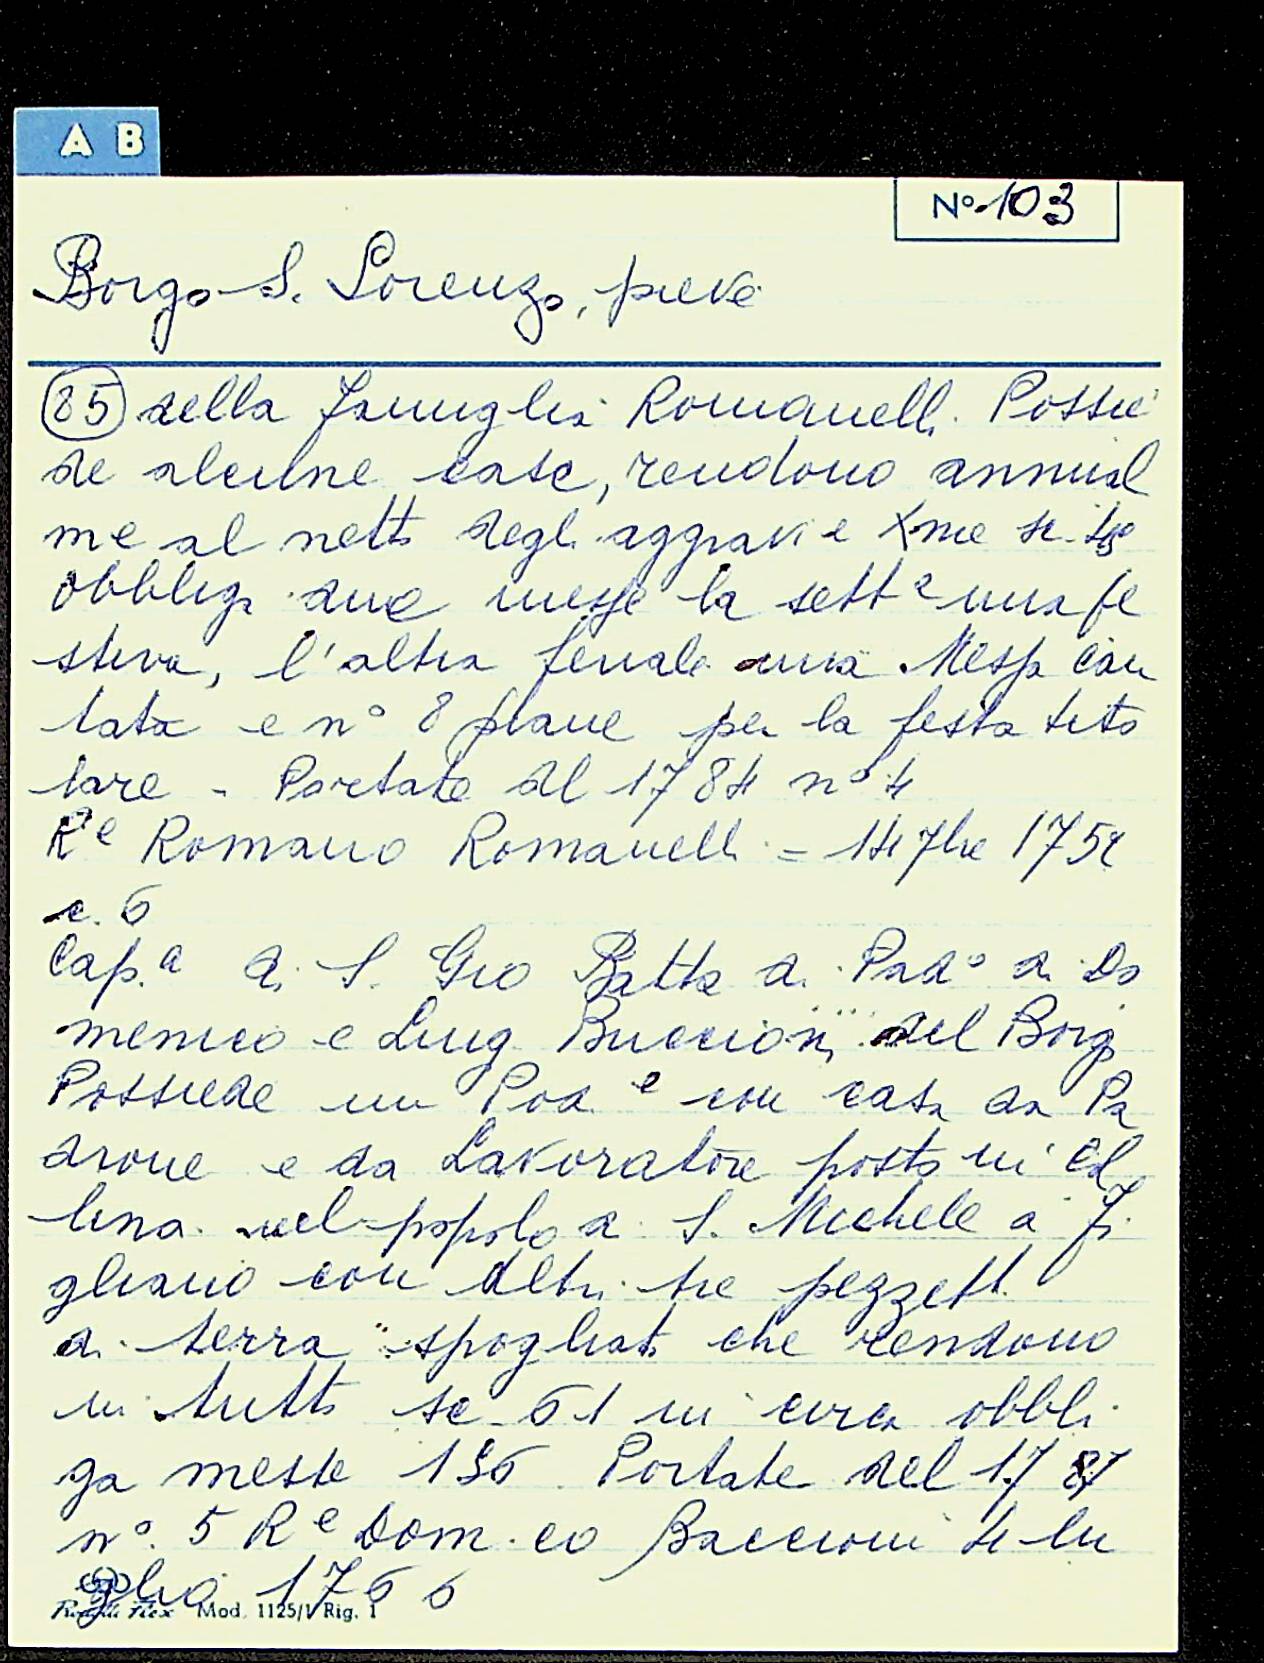 A B
No. 103
Borgo S. Lorenzo, pieve
85 della famiglia Romanelli. Possie
de alcune case, rendono annual
me al netto degli aggravi e Xme sc. 45
obbligo due messe la settª una fe
stiva, l'altra feriale una Messa can
tata e n° 8 piane per la festa tito
lare - Portate del 1784 n° 4
Re Romano Romanelli = 14 7bre 1752
c. 6
Cap.a di S. Gio Batta di Pado di Do
menico e Luigi Buccioni del Borgo
Possiede un Pod.e con casa da Pa
drone e da Lavoratore posto in col
lina nel popolo di S. Michele a Fi
gliano con altri tre pezzetti
di terra spogliati che rendono
in tutto sc 61 in circa obbli
ga messe 136 Portate del 1787
n°. 5 Re Dom.co Baccioni 4 lu
glio 1766
Mod. 1125/1 Rig. 1